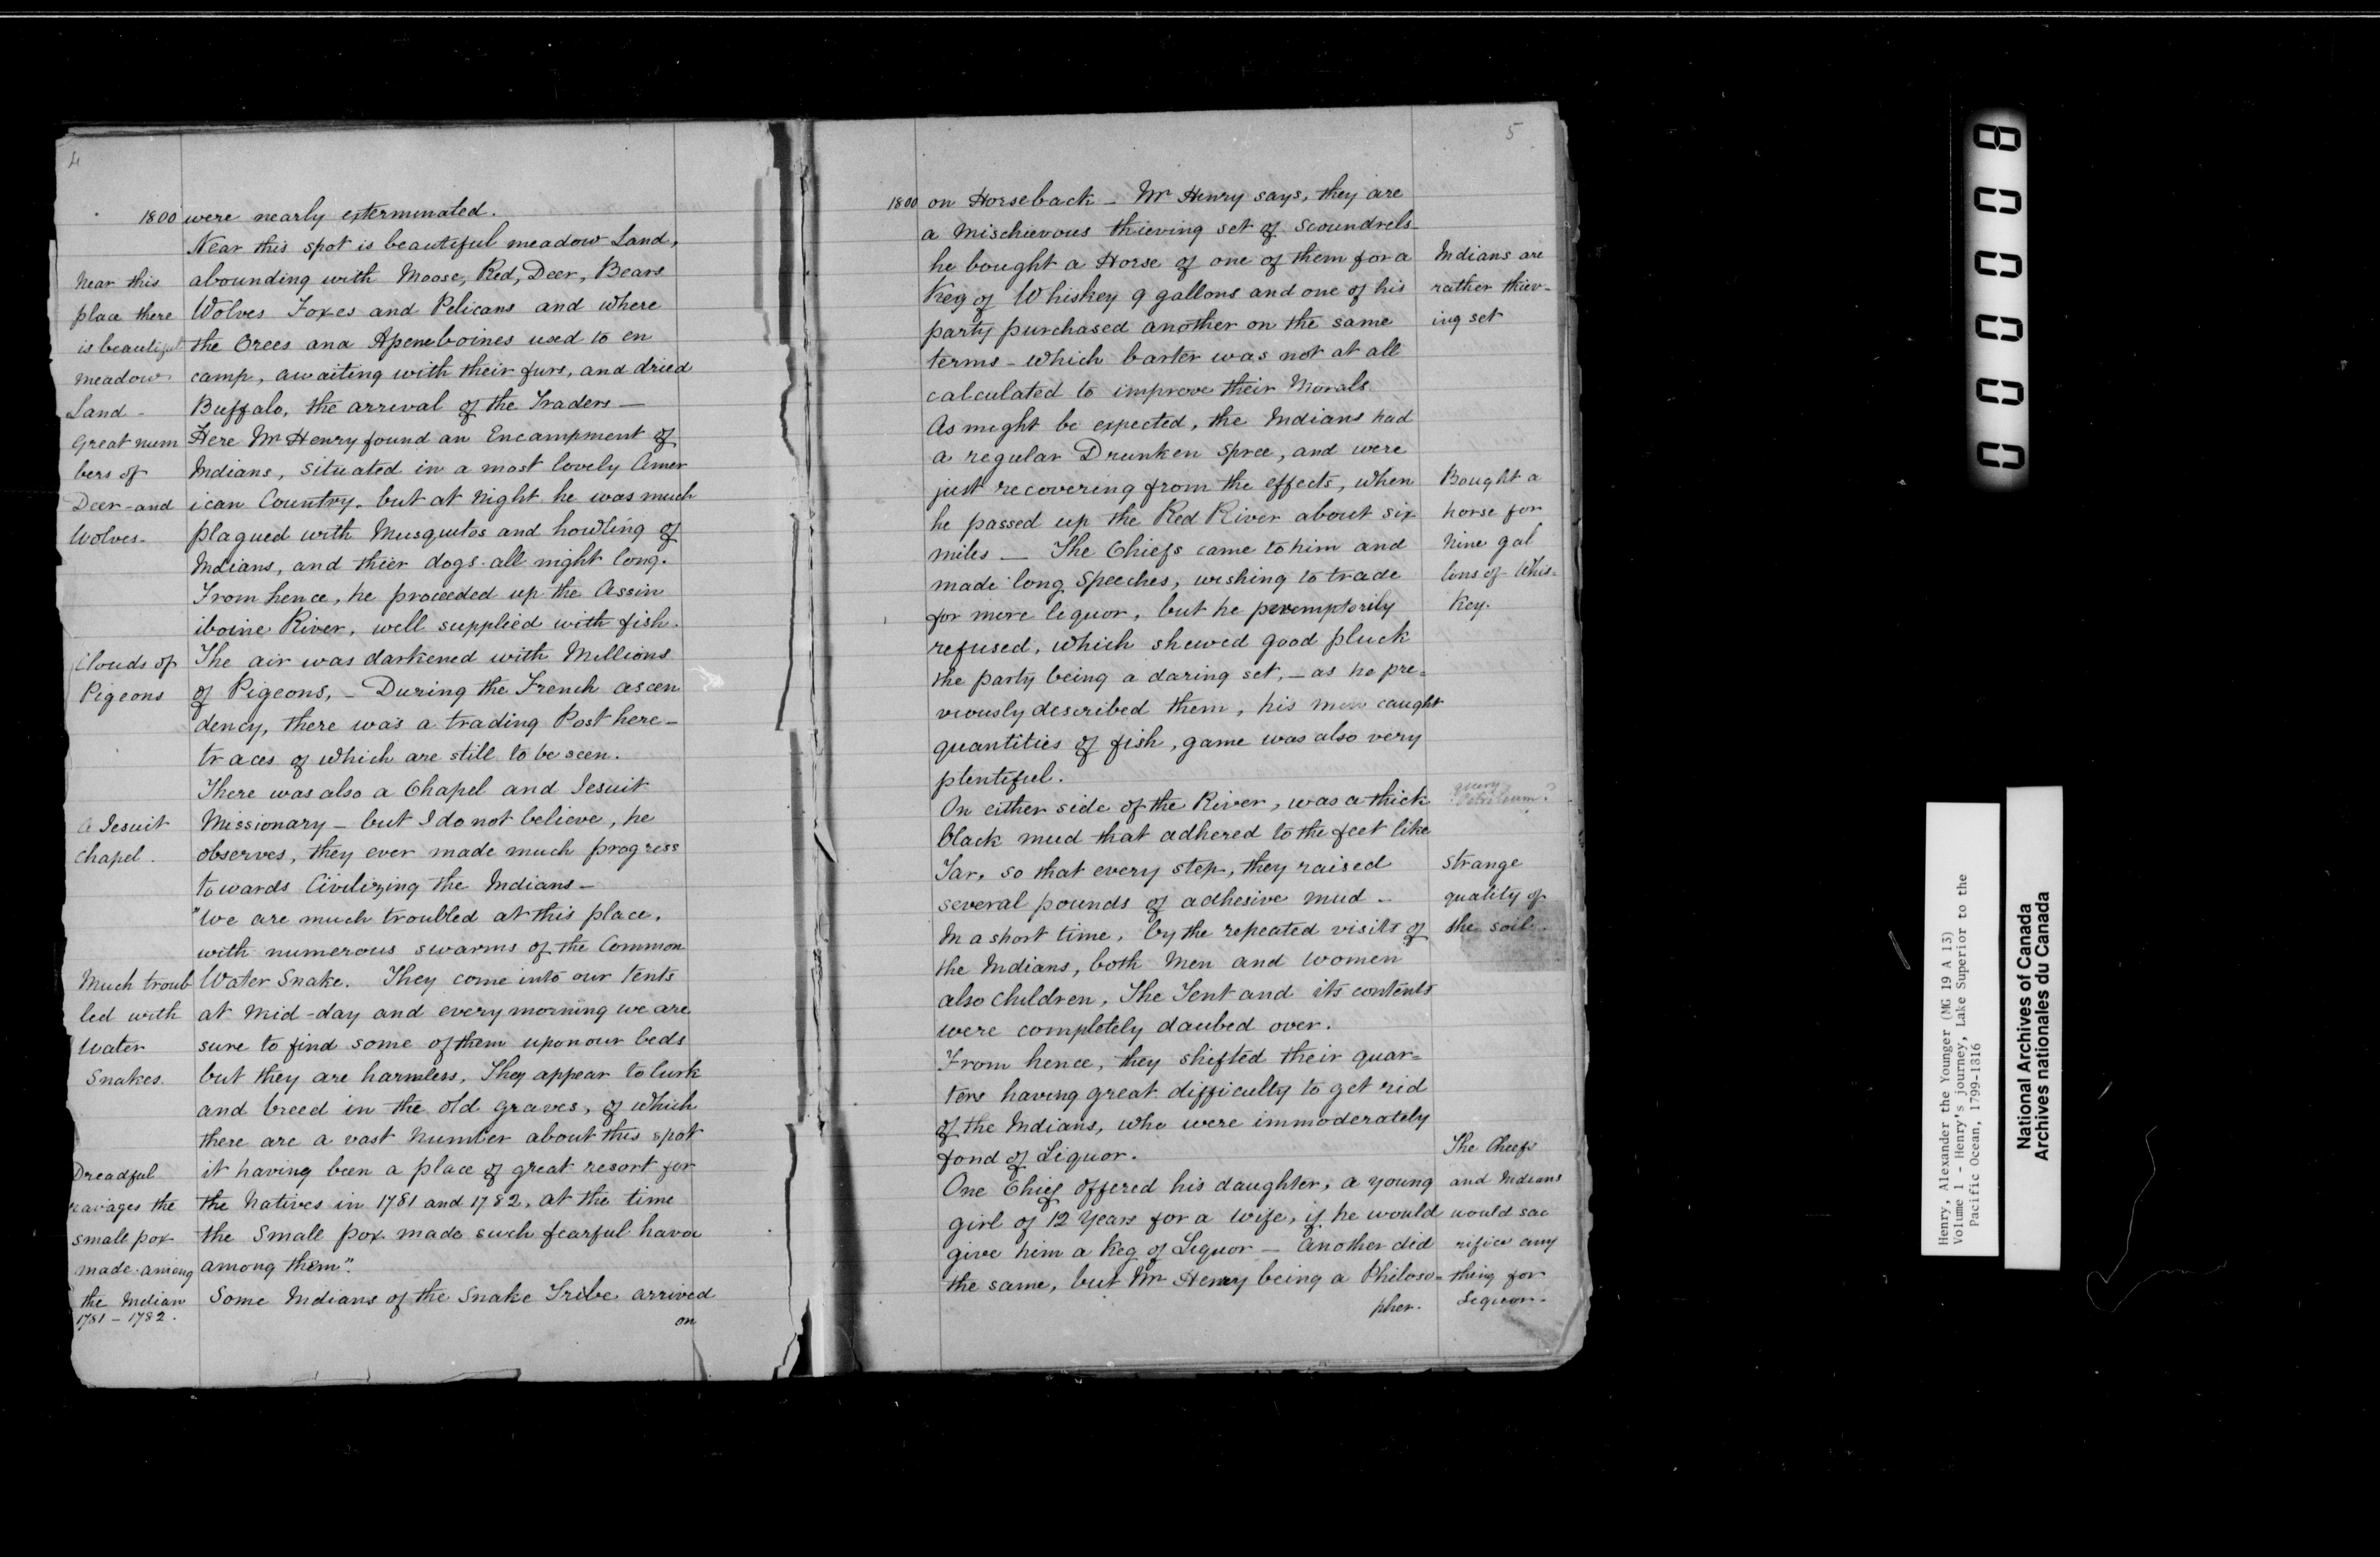 4
1800 were nearly exterminated.
Near this spot is beautiful meadow Land,
abounding with Moose, Red, Deer, Bears
Wolves Foxes and Pelicans and where
the Crees and Apeneboines used to en
camp, awaiting with their furs, and dried
Buffalo, the arrival of the Traders —
Here Mr Henry found an Encampment of
Indians, situated in a most lovely Amer
ican Country. but at Night he was much
plagued with Musquitos and howling of
Indians, and thier dogs all night long.
From hence, he proceeded up the Assin
iboine River, well supplied with fish.
The air was darkened with Millions
of Pigeons, — During the French ascen
dency, there was a trading Post here —
traces of which are still to be seen.
There was also a Chapel and Jesuit
Missionary — but I do not believe, he
observes, they ever made much progress
towards Civilizing the Indians —
"We are much troubled at this place,
with numerous swarms of the Common
Water Snake. They come into our tents
at Mid-day and every morning we are
sure to find some of them upon our beds
but they are harmless, They appear to lurk
and breed in the old graves, of which
there are a vast Number about this spot
it having been a place of great resort for
the Natives in 1781 and 1782, at the time
the Small pox made such fearful havoc
among them".
Some Indians of the Snake Tribe arrived
on
Near this
place there
is beautiful
meadow
Land —
Great num
bers of
Deer - and
Wolves —
Clouds of
Pigeons
A Jesuit
Chapel.
Much troub
led with
Water
Snakes.
Dreadful
ravages the
small pox
made among
the Indian
1781 – 1782.
5
1800 on Horseback — Mr Henry says, they are
a Mischievous thieving set of scoundrels —
he bought a Horse of one of them for a
Keg of Whiskey 9 gallons and one of his
party purchased another on the same
terms — which barter was not at all
calculated to improve their Morals
As might be expected, the Indians had
a regular Drunken Spree, and were
just recovering from the effects, when
he passed up the Red River about six
miles — The Chiefs came to him and
made long Speeches, wishing to trade
for more liquor, but he peremptorily
refused, which shewed good pluck
the party being a daring set, — as he pre=
viously described them, his men caught
quantities of fish, game was also very
plentiful.
On either side of the River, was a thick
black mud that adhered to the feet like
Tar, so that every step, they raised
several pounds of adhesive mud —
In a short time, by the repeated visits of
the Indians, both Men and Women
also Children, The Tent and its contents
were completely daubed over.
From hence, they shifted their quar=
ters having great difficulty to get rid
of the Indians, who were immoderately
fond of Liquor.
One Chief offered his daughter, a young
girl of 12 Years for a Wife, if he would
give him a Keg of Liquor — Another did
the same, but Mr Henry being a Philoso=
pher.
Indians are
rather thiev-
ing set
Bought a
horse for
Nine gal
lons of Whis=
Key.
query
Petroleum?
strange
quality of
the soil.
The Cheefs
and Indians
would sac
rifice any
thing for
Liquor.
000008
Henry, Alexander the Younger (MG 19 A 13)
Volume 1 - Henry's journey, Lake Superior to the
Pacific Ocean, 1799-1816
National Archives of Canada
Archives nationales du Canada